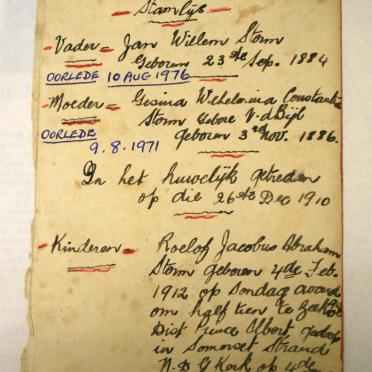 Stamlijs
Vader = Jan Willem Storm
Geboren 23ste Sep. 1884
OORLEDE 10 AUG 1976
Moeder = Gesina Wilhelmina Constantia
Storm Gebore V-d Bijl
OORLEDE
geboren 3de Nov. 1886.
9.8.1971
In het huwelijk getreden
op die 26ste Dec 1910
Kinderen = Roelof Jacobus Abraham
Storm geboren 4de Feb.
1912 op Sondag avond
om half tien te
Dist Prince Albert gedoop
in Somerset Strand
N.D G Kerk op 4de